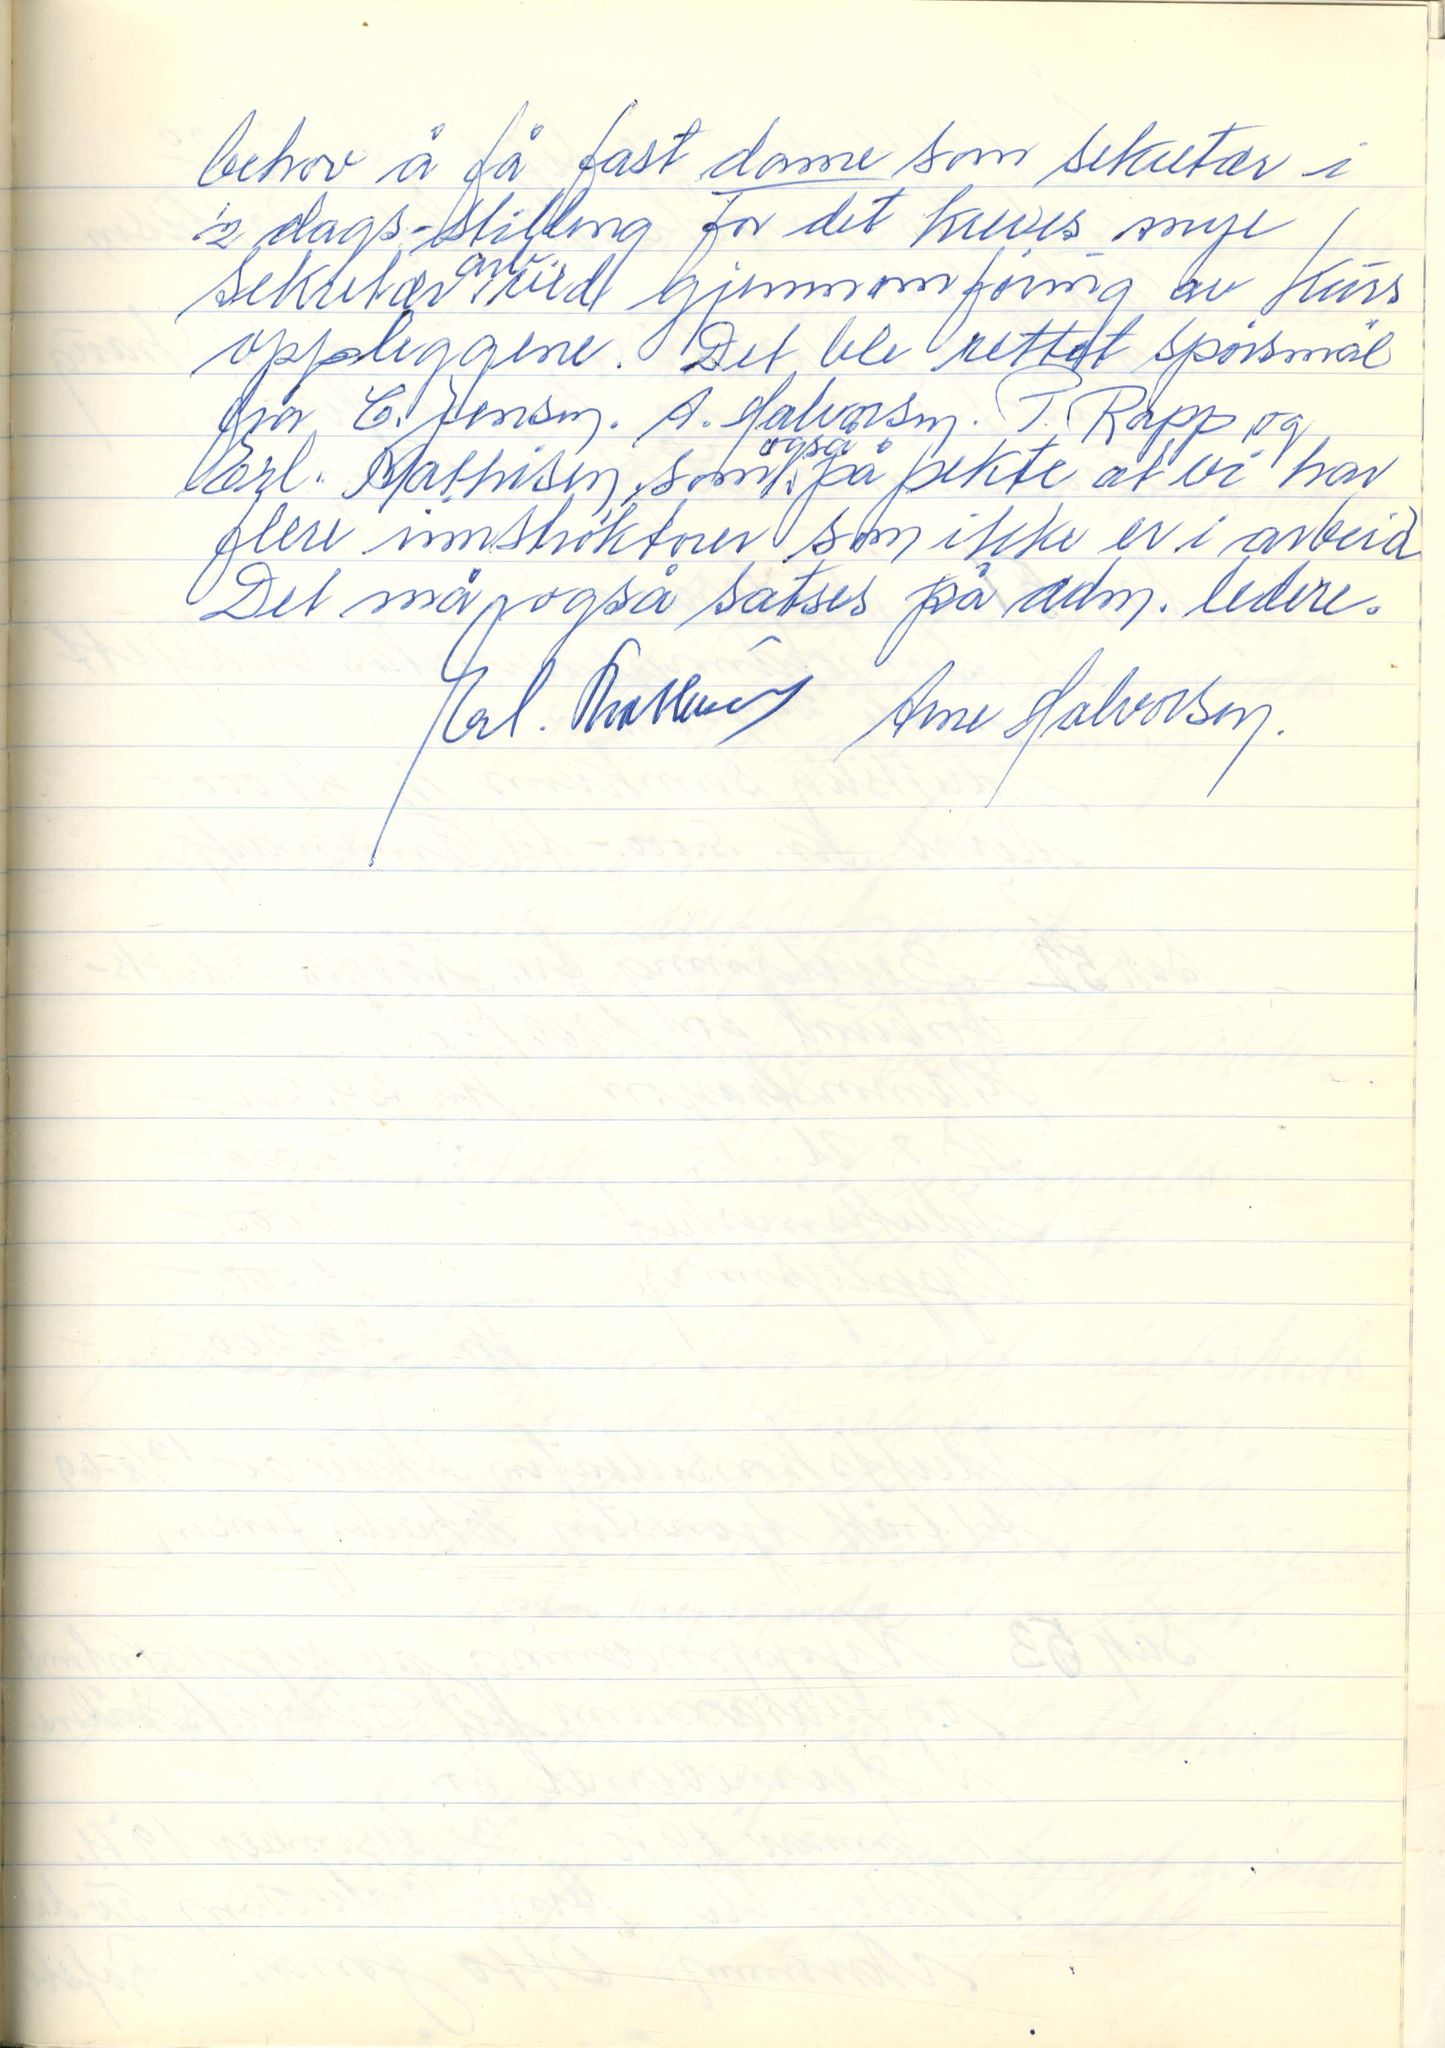 behov å få fast dame som sekretær i
1/2 dags-stilling for det kreves mye
sekretær arb. ved gjennomføring av kurs
oppleggene. Det ble rettet spørsmål
fra C. Jensen. A. Halvorsen. T. Rapp og
Erl. Mathisen, som også på pekte at vi har
flere innstrøktører som ikke er i arbeid
Det må også satses på adm. ledere.
Erl. Mathisen Arne Halvorsen.